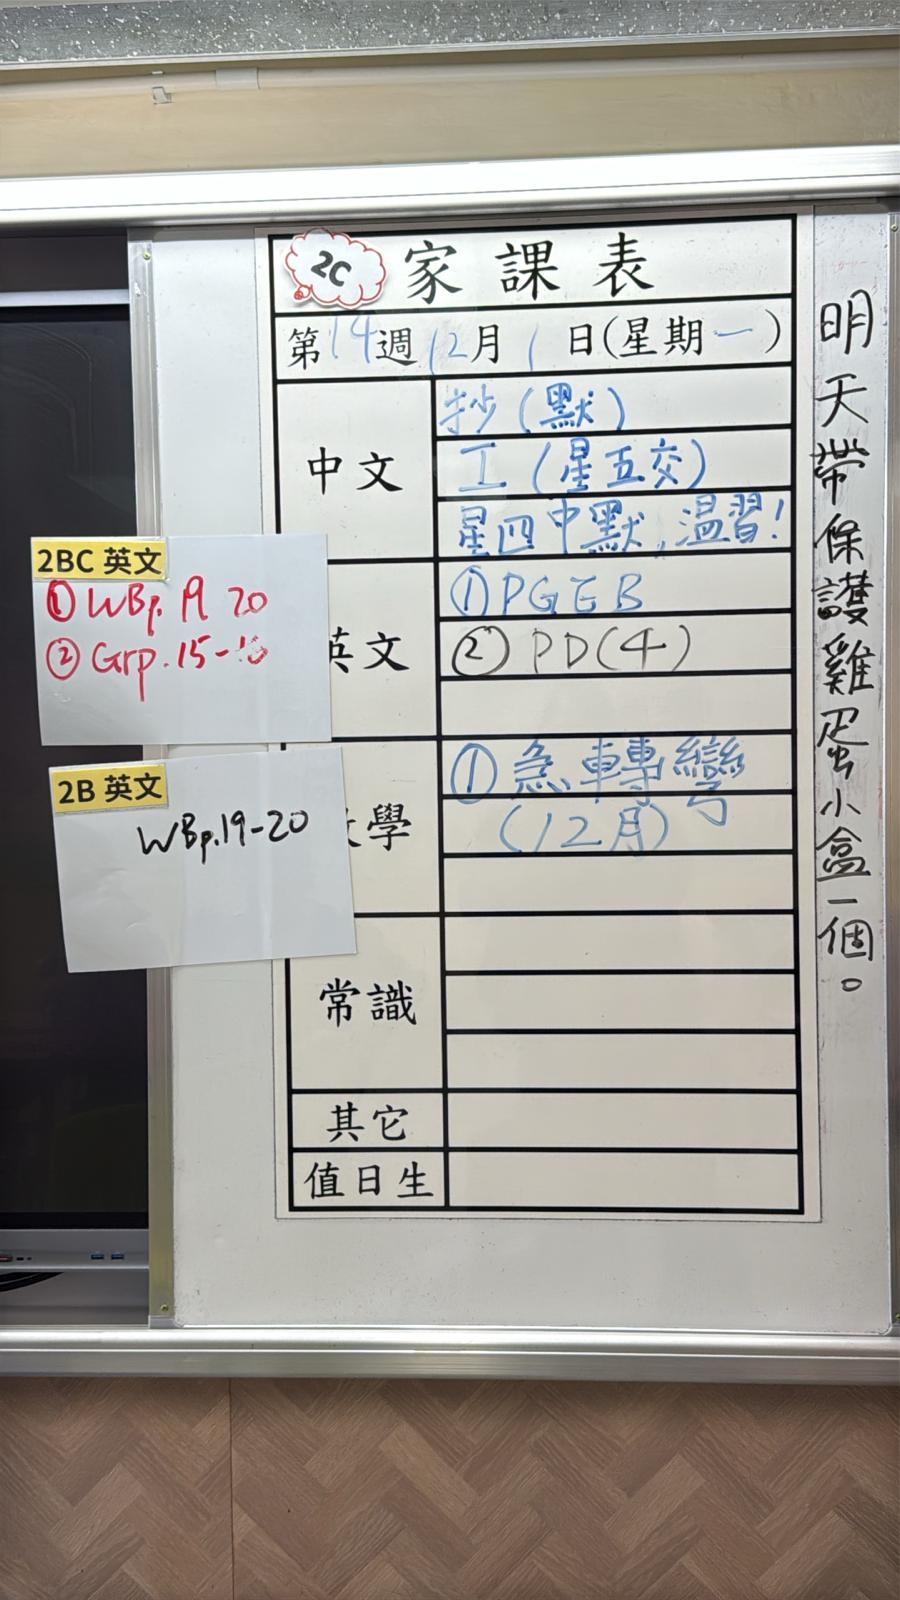 2C
家課表
第14週12月1日(星期一)
中文
抄(默)
工(星五交)
星四中默,溫習!
英文
①PGEB
②PD(4)
數學
①急轉彎
(12月)
常識
其它
值日生
2BC 英文
①WBp.19 20
②Grp.15-
2B 英文
WBp.19-20
明天帶保護雞蛋小盒一個。